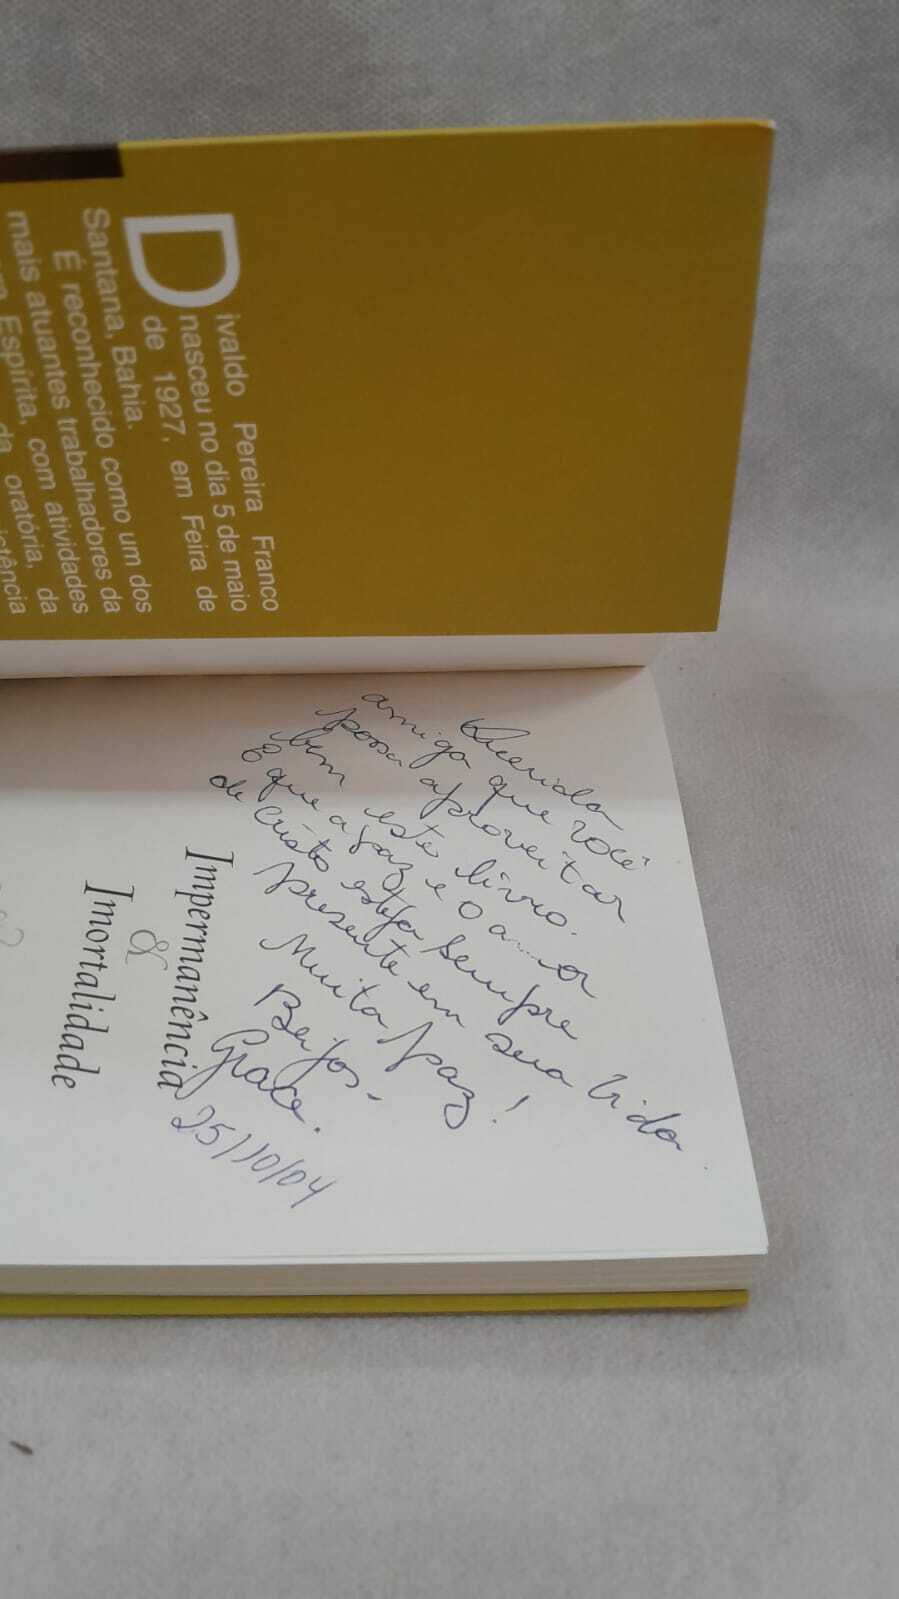 Divaldo Pereira Franco
nasceu no dia 5 de maio
de 1927, em Feira de
Santana, Bahia.
É reconhecido como um dos
mais atuantes trabalhadores da
Espírita, com atividades
da oratória, da
Querida
amiga que você
possa aproveitar
bem este livro.
E que a paz e o amor
de Cristo esteja sempre
presente em sua vida
Muita paz!
Beijos.
Grace.
25/10/04
Impermanência
&
Imortalidade